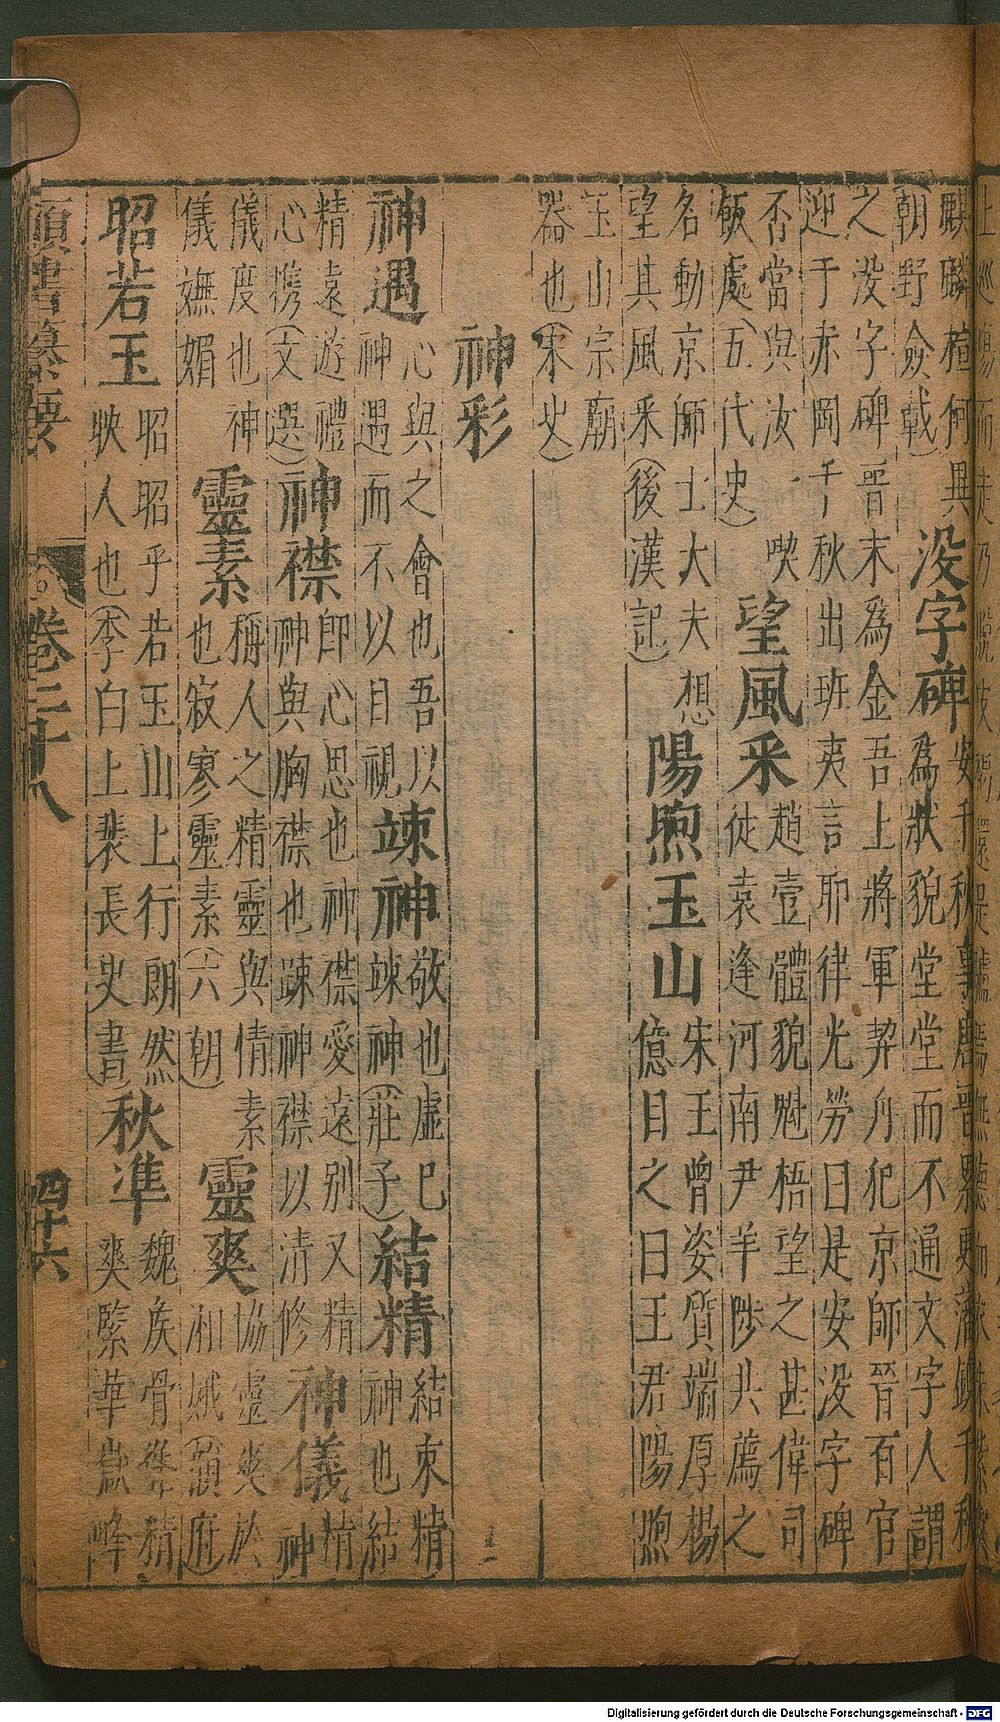 麒麟楦何異
朝野僉載
没字碑
安千秋事唐晉累典藩鎮千秋
為狀貌堂堂而不通文字人謂
之没字碑晋末為金吾上將軍契丹犯京師晉百官
迎于赤岡千秋出班夷言耶律光勞曰是安没字碑
否當與汝一喫
飯處(五代史)
望風采
趙壹體貌魁梧望之甚偉司
徒袁逢河南尹羊陟共薦之
名動京師士大夫想
望其風采(後漢記)
陽煦玉山
宋王曾姿質端厚楊
億目之曰王君陽煦
玉山宗廟
器也(宋史)
神彩
神遇
心與之會也吾以
神遇而不以目視
竦神
敬也虛已
竦神(莊子)
結精
結束精
神也結
精遠遊禮
心携(文選)
神襟
即心思也神襟愛遠别又精
神與胸襟也踈神襟以清修
神儀
精
神
儀度也神
儀嫵媚
靈素
稱人之精靈與情素
也寂寥靈素(六朝)
靈爽
協靈爽於
湘娥(韻府)
昭若玉
昭昭乎若玉山上行朗然
映人也(李白上裴長史書)
秋準
魏矦骨聳精
爽緊華嶽峰
卷二十八
四十六
Digitalisierung gefördert durch die Deutsche Forschungsgemeinschaft - DFG